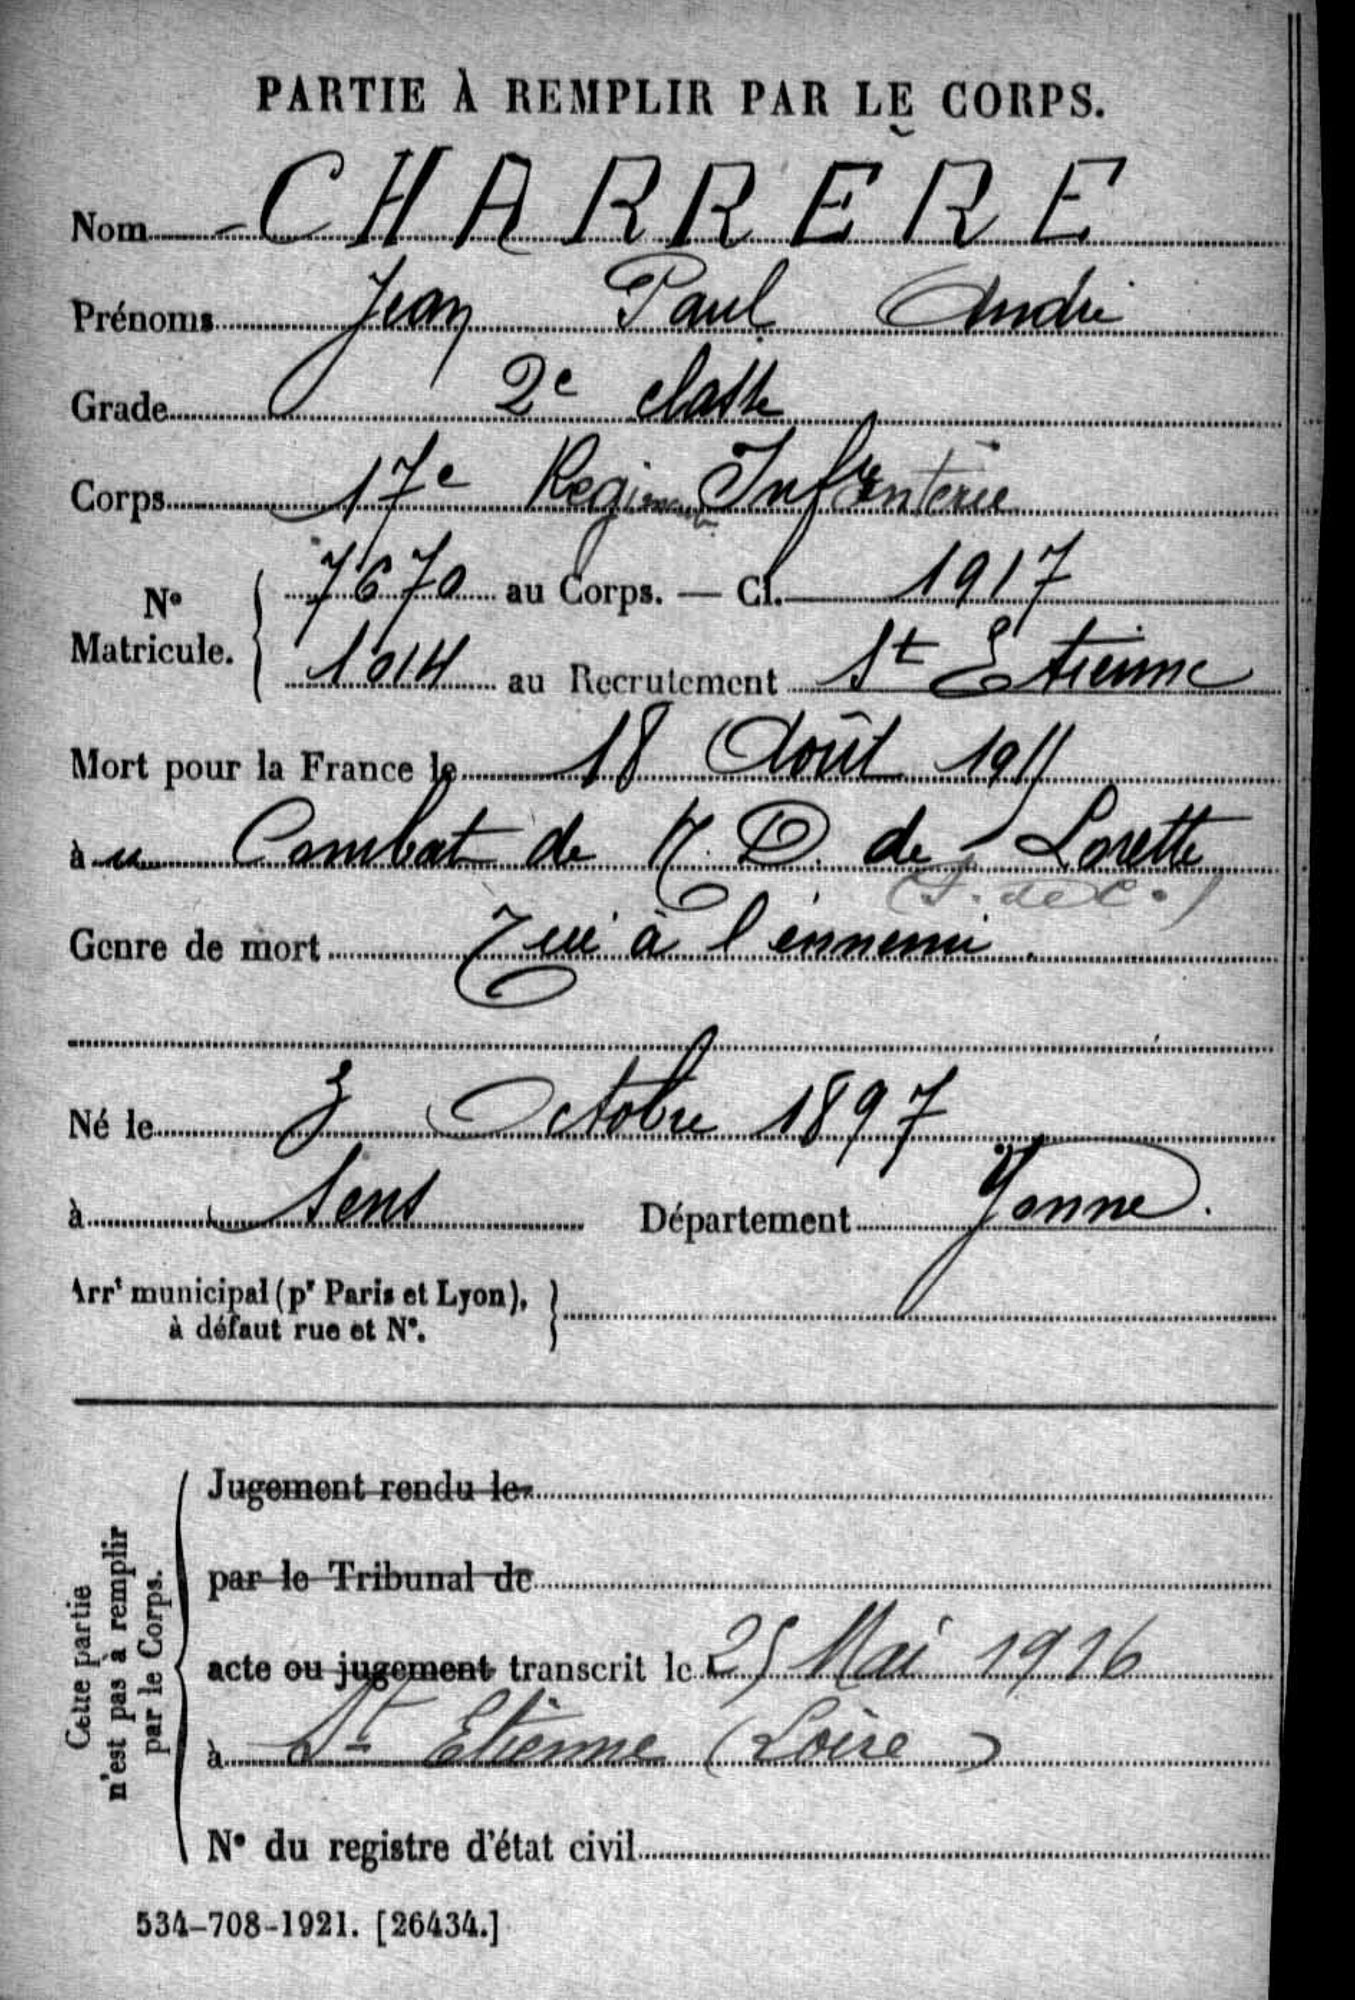 PARTIE À REMPLIR PAR LE CORPS.
Nom CHARRERE
Prénoms Jean Paul André
Grade 2e classe
Corps 17e Régiment Infanterie
No Matricule. 7670 au Corps. — Cl. 1917
1014 au Recrutement St Etienne
Mort pour la France le 18 Août
à u Combat de N. D. de Lorette
(P. de C.)
Genre de mort Tué à l'ennemi.
Né le 3 Octobre 1897
à Sens Département Yonne.
Arrt municipal (pr Paris et Lyon),
à défaut rue et No.
Cette partie
n'est pas à remplir
par le Corps.
Jugement rendu le
par le Tribunal de
acte ou jugement transcrit le 25 Mai 1916
à St Etienne (Loire)
No du registre d'état civil
534-708-1921. [26434.]